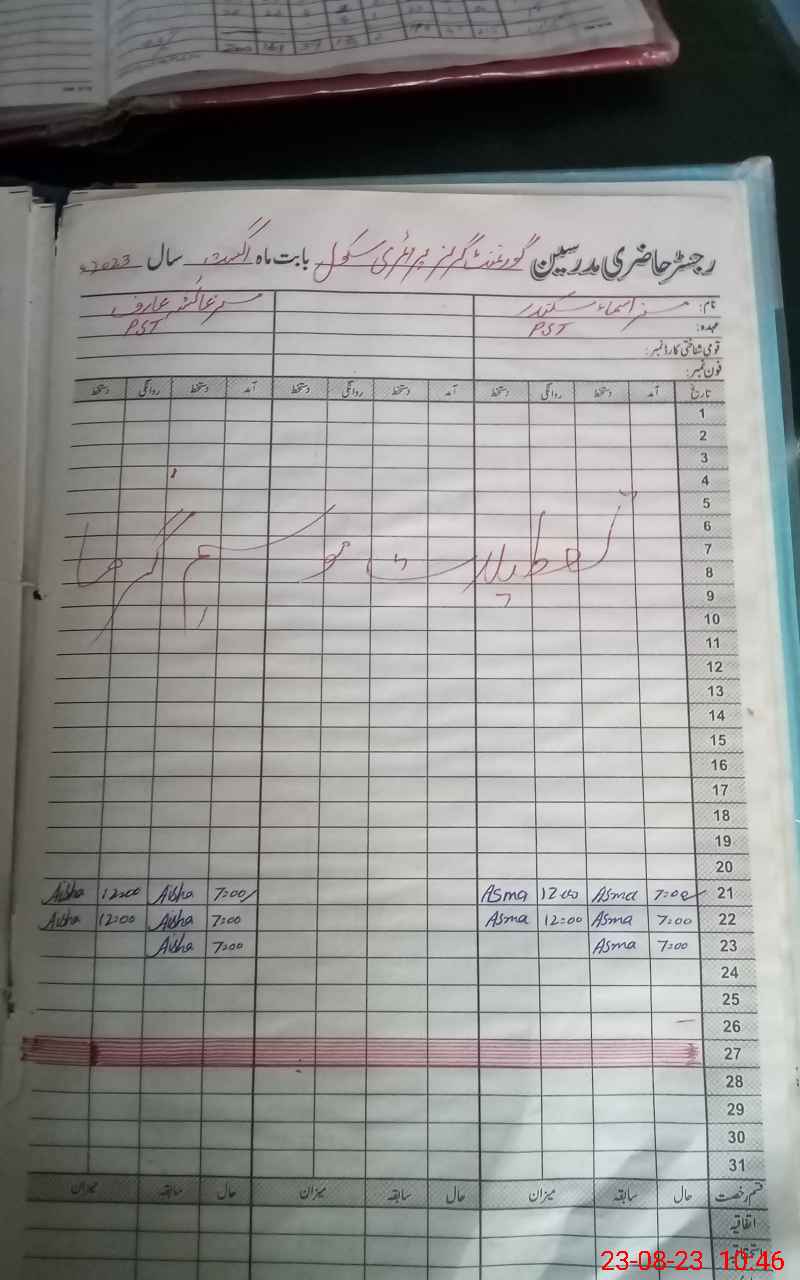 رجسٹر حاضری مدرسین گورنمنٹ گرلز پرائمری سکول بابت ماہ اگست سال 2023ء
نام: مسز اسماء سکندر مسز عائشہ عارف
عہدہ: PST PST
قومی شناختی کارڈ نمبر:
فون نمبر:
تاریخ آمد دستخط روانگی دستخط آمد دستخط روانگی دستخط آمد دستخط روانگی دستخط
1
2
3
4
5
6
7
تعطیلات موسم گرما
8
9
10
11
12
13
14
15
16
17
18
19
20
21 7:00 Asma 12:00 Asma 7:00 Aisha 12:00 Aisha
22 7:00 Asma 12:00 Asma 7:00 Aisha 12:00 Aisha
23 7:00 Asma 7:00 Aisha
24
25
26
27
28
29
30
31
قسم رخصت حال سابقہ میزان حال سابقہ میزان حال سابقہ میزان
اتفاقیہ
23-08-23 10:46